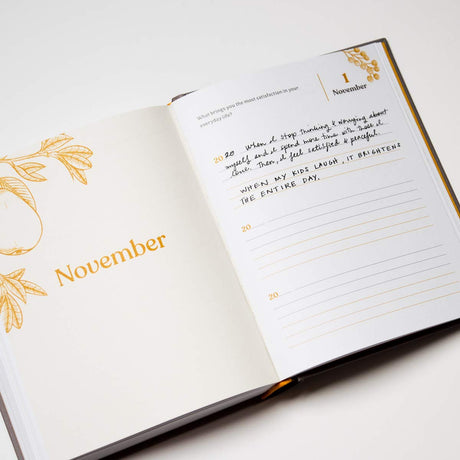 November
What brings you the most satisfaction in your
everyday life?
1
November
20 20 When I stop thinking & worrying about
myself and I spend more time with those I
love. Then, I feel satisfied & peaceful.
WHEN MY KIDS LAUGH, IT BRIGHTENS
THE ENTIRE DAY.
20
20